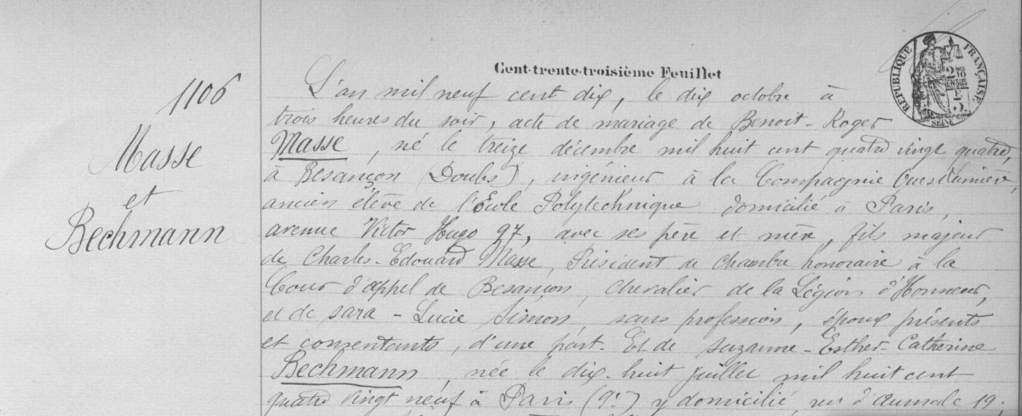 Cent-trente-troisième Feuillet
RÉPUBLIQUE FRANÇAISE
1106
Masse
et
Bechmann
L'an mil neuf cent dix, le dix octobre à
trois heures du soir, acte de mariage de Benoit-Roger
Masse, né le treize décembre mil huit cent quatre vingt quatre,
à Besançon (Doubs), ingénieur à la Compagnie Ouest Lumière,
ancien élève de l'Ecole Polytechnique domicilié à Paris,
avenue Victor Hugo 97, avec ses père et mère, fils majeur
de Charles-Edouard Masse, Président de chambre honoraire à la
Cour d'appel de Besançon, Chevalier de la Légion d'Honneur,
et de Sara-Lucie Simon, sans profession, époux présents
et consentants, d'une part. Et de Suzanne-Esther-Catherine
Bechmann, née le dix-huit juillet mil huit cent
quatre vingt neuf à Paris (9e) y domicilié rue d'Aumale 19,